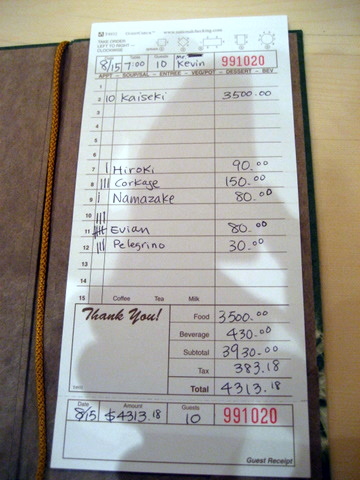 TAKE ORDER
LEFT TO RIGHT –
CLOCKWISE
8/15 7:00 10 Mr. Kevin 991020
APPT - SOUP/SAL - ENTREE - VEG/POT - DESSERT - BEV
1
2 10 Kaiseki 3500.00
3
4
5
6
7 | Hiroki 90.00
8 ||| Corkage 150.00
9 | Namazake 80.00
10
11 Evian 80.00
12 ||| Pelegrino 30.00
13
14
15 Coffee Tea Milk
Thank You!
Food 3500.00
Beverage 430.00
Subtotal 3930.00
Tax 383.18
Total 4313.18
Date Amount Guests
8/15 $4313.18 10 991020
Guest Receipt